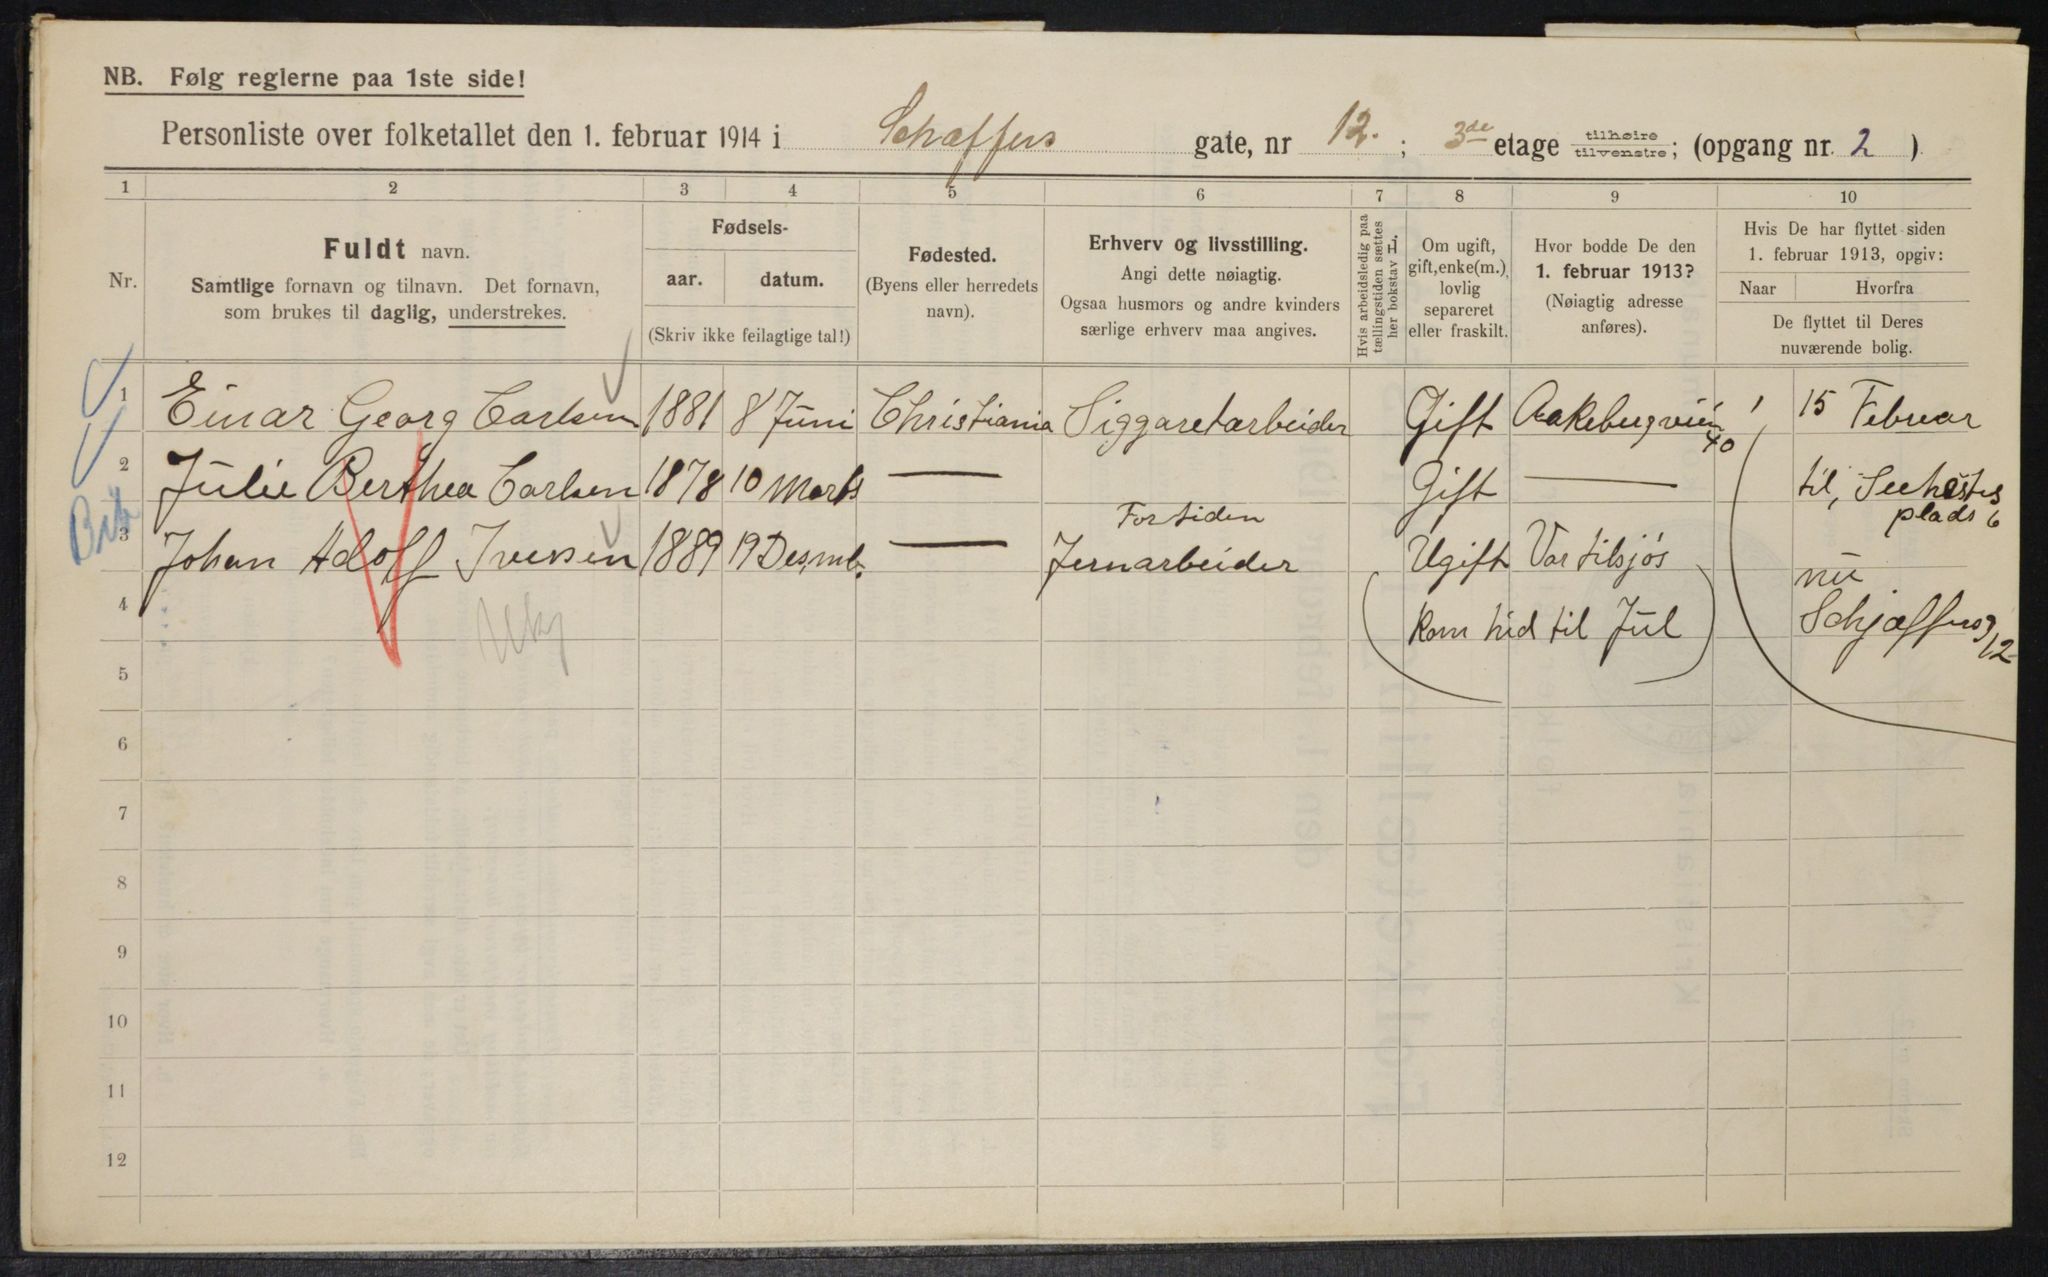 NB. Følg reglerne paa 1ste side!
Personliste over folketallet den 1. februar 1914 i Schæffers gate, nr 12. ; 3de etage tilhøire tilvenstre; (opgang nr. 2 )
1 2 3 4 5 6 7 8 9 10
Nr.
Fuldt navn.
Samtlige fornavn og tilnavn. Det fornavn,
som brukes til daglig, understrekes.
Fødsels-
aar. datum.
(Skriv ikke feilagtige tal!)
Fødested.
(Byens eller herredets
navn).
Erhverv og livsstilling.
Angi dette nøiagtig.
Ogsaa husmors og andre kvinders
særlige erhverv maa angives.
Hvis arbeidsledig paa
tællingstiden sættes
her bokstav L.
Om ugift,
gift, enke(m.),
lovlig
separeret
eller fraskilt.
Hvor bodde De den
1. februar 1913?
(Nøiagtig adresse
anføres).
Hvis De har flyttet siden
1. februar 1913, opgiv:
Naar Hvorfra
De flyttet til Deres
nuværende bolig.
1 Einar Georg Carlsen 1881 8 Juni Christiania Siggaretarbeider Gift Aakebergveien 40 15 Februar
2 Julie Berthea Carlsen 1878 10 Marts — Gift — til, Seehestes
plads 6
Fortiden
3 Johan Adolf Iversen 1889 19 Desmb. — Jernarbeider Ugift Var tilsjøs nu
4 (kom hid til Jul) Schjæffersg 12
5
6
7
8
9
10
11
12